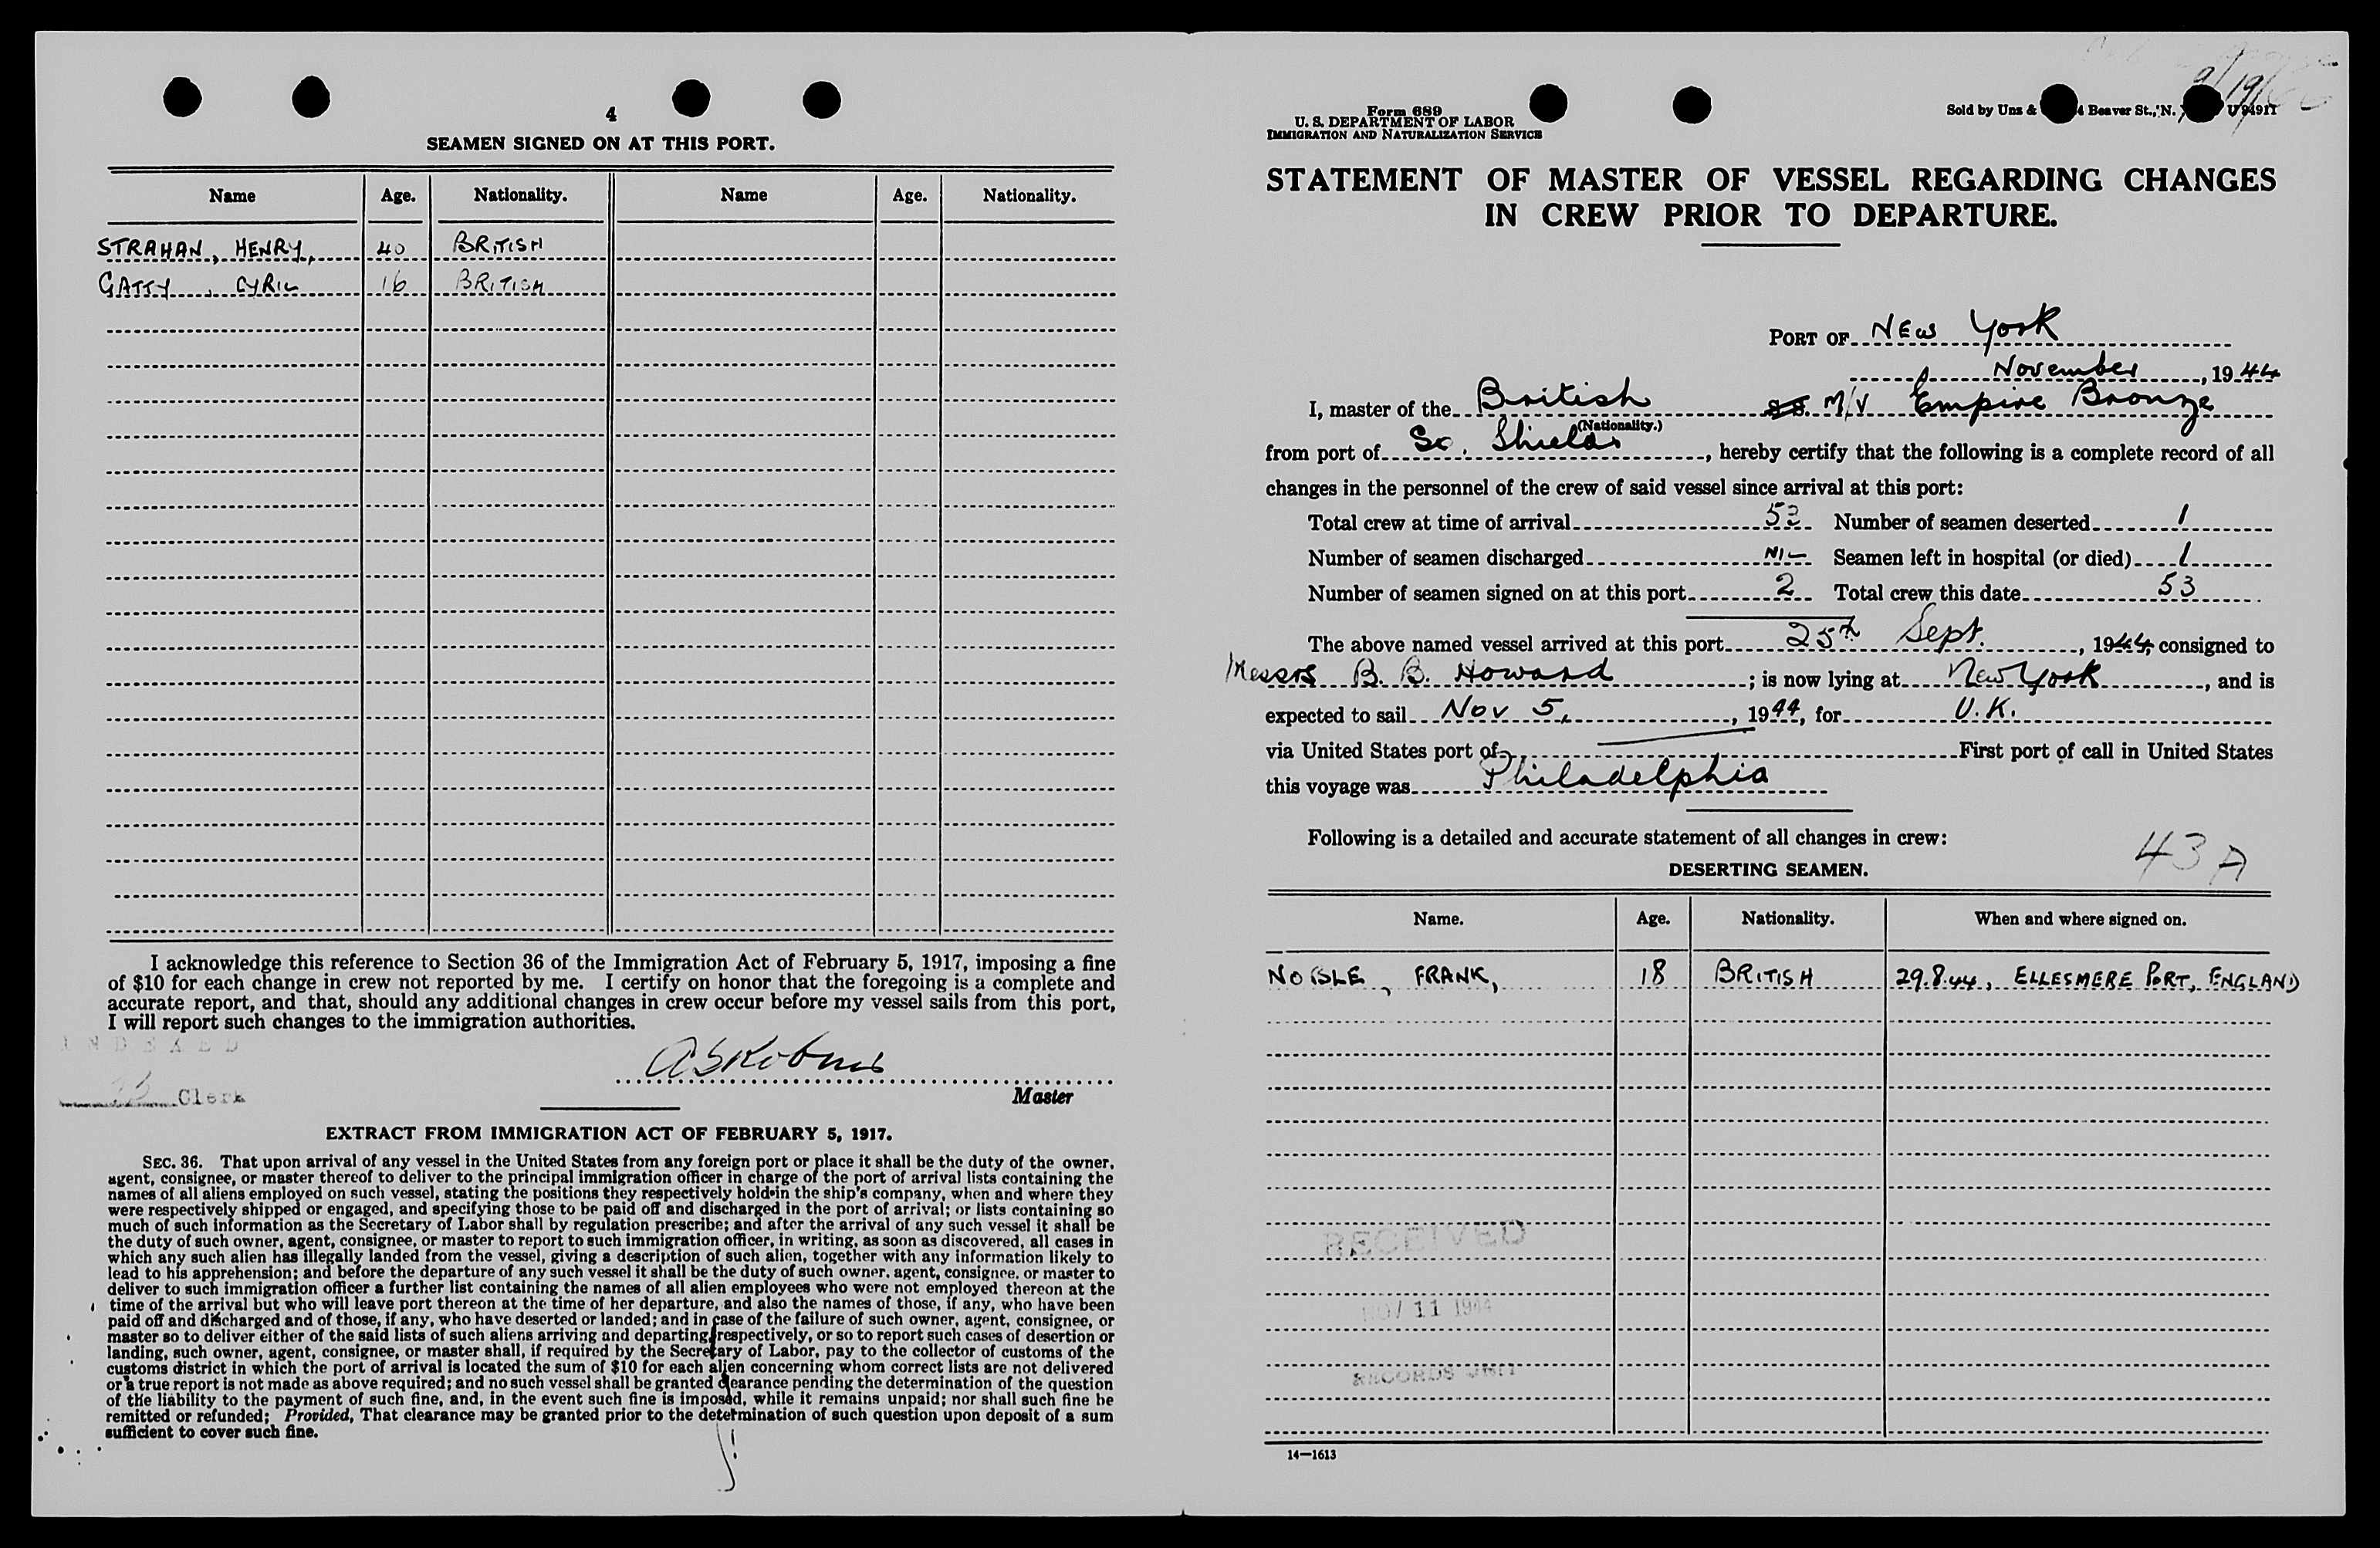 4
SEAMEN SIGNED ON AT THIS PORT.
Name Age. Nationality. Name Age. Nationality.
STRAHAN, HENRY, 40 BRITISH
GATTY, CYRIL 16 BRITISH
I acknowledge this reference to Section 36 of the Immigration Act of February 5, 1917, imposing a fine
of $10 for each change in crew not reported by me. I certify on honor that the foregoing is a complete and
accurate report, and that, should any additional changes in crew occur before my vessel sails from this port,
I will report such changes to the immigration authorities.
INDEXED
Clerk
Master
EXTRACT FROM IMMIGRATION ACT OF FEBRUARY 5, 1917.
SEC. 36. That upon arrival of any vessel in the United States from any foreign port or place it shall be the duty of the owner,
agent, consignee, or master thereof to deliver to the principal immigration officer in charge of the port of arrival lists containing the
names of all aliens employed on such vessel, stating the positions they respectively hold in the ship's company, when and where they
were respectively shipped or engaged, and specifying those to be paid off and discharged in the port of arrival; or lists containing so
much of such information as the Secretary of Labor shall by regulation prescribe; and after the arrival of any such vessel it shall be
the duty of such owner, agent, consignee, or master to report to such immigration officer, in writing, as soon as discovered, all cases in
which any such alien has illegally landed from the vessel, giving a description of such alien, together with any information likely to
lead to his apprehension; and before the departure of any such vessel it shall be the duty of such owner, agent, consignee, or master to
deliver to such immigration officer a further list containing the names of all alien employees who were not employed thereon at the
time of the arrival but who will leave port thereon at the time of her departure, and also the names of those, if any, who have been
paid off and discharged and of those, if any, who have deserted or landed; and in case of the failure of such owner, agent, consignee, or
master so to deliver either of the said lists of such aliens arriving and departing, respectively, or so to report such cases of desertion or
landing, such owner, agent, consignee, or master shall, if required by the Secretary of Labor, pay to the collector of customs of the
customs district in which the port of arrival is located the sum of $10 for each alien concerning whom correct lists are not delivered
or a true report is not made as above required; and no such vessel shall be granted clearance pending the determination of the question
of the liability to the payment of such fine, and, in the event such fine is imposed, while it remains unpaid; nor shall such fine be
remitted or refunded; Provided, That clearance may be granted prior to the determination of such question upon deposit of a sum
sufficient to cover such fine.
Form 689
U. S. DEPARTMENT OF LABOR
IMMIGRATION AND NATURALIZATION SERVICE
Sold by Unz & Beaver St., N.
STATEMENT OF MASTER OF VESSEL REGARDING CHANGES
IN CREW PRIOR TO DEPARTURE.
PORT OF New York
November, 1944
I, master of the British S.S. M/V Empire Bronze
(Nationality.)
from port of So. Shields, hereby certify that the following is a complete record of all
changes in the personnel of the crew of said vessel since arrival at this port:
Total crew at time of arrival 53 Number of seamen deserted 1
Number of seamen discharged NIL Seamen left in hospital (or died) 1
Number of seamen signed on at this port 2 Total crew this date 53
The above named vessel arrived at this port 25th Sept., 1944, consigned to
Messrs B. B. Howard; is now lying at New York, and is
expected to sail Nov 5, 1944, for U.K.
via United States port of First port of call in United States
this voyage was Philadelphia
Following is a detailed and accurate statement of all changes in crew:
43 A
DESERTING SEAMEN.
Name. Age. Nationality. When and where signed on.
NOISLE, FRANK, 18 BRITISH 29.8.44, ELLESMERE PORT, ENGLAND
RECEIVED
NOV 11 1944
RECORDS UNIT
14—1613